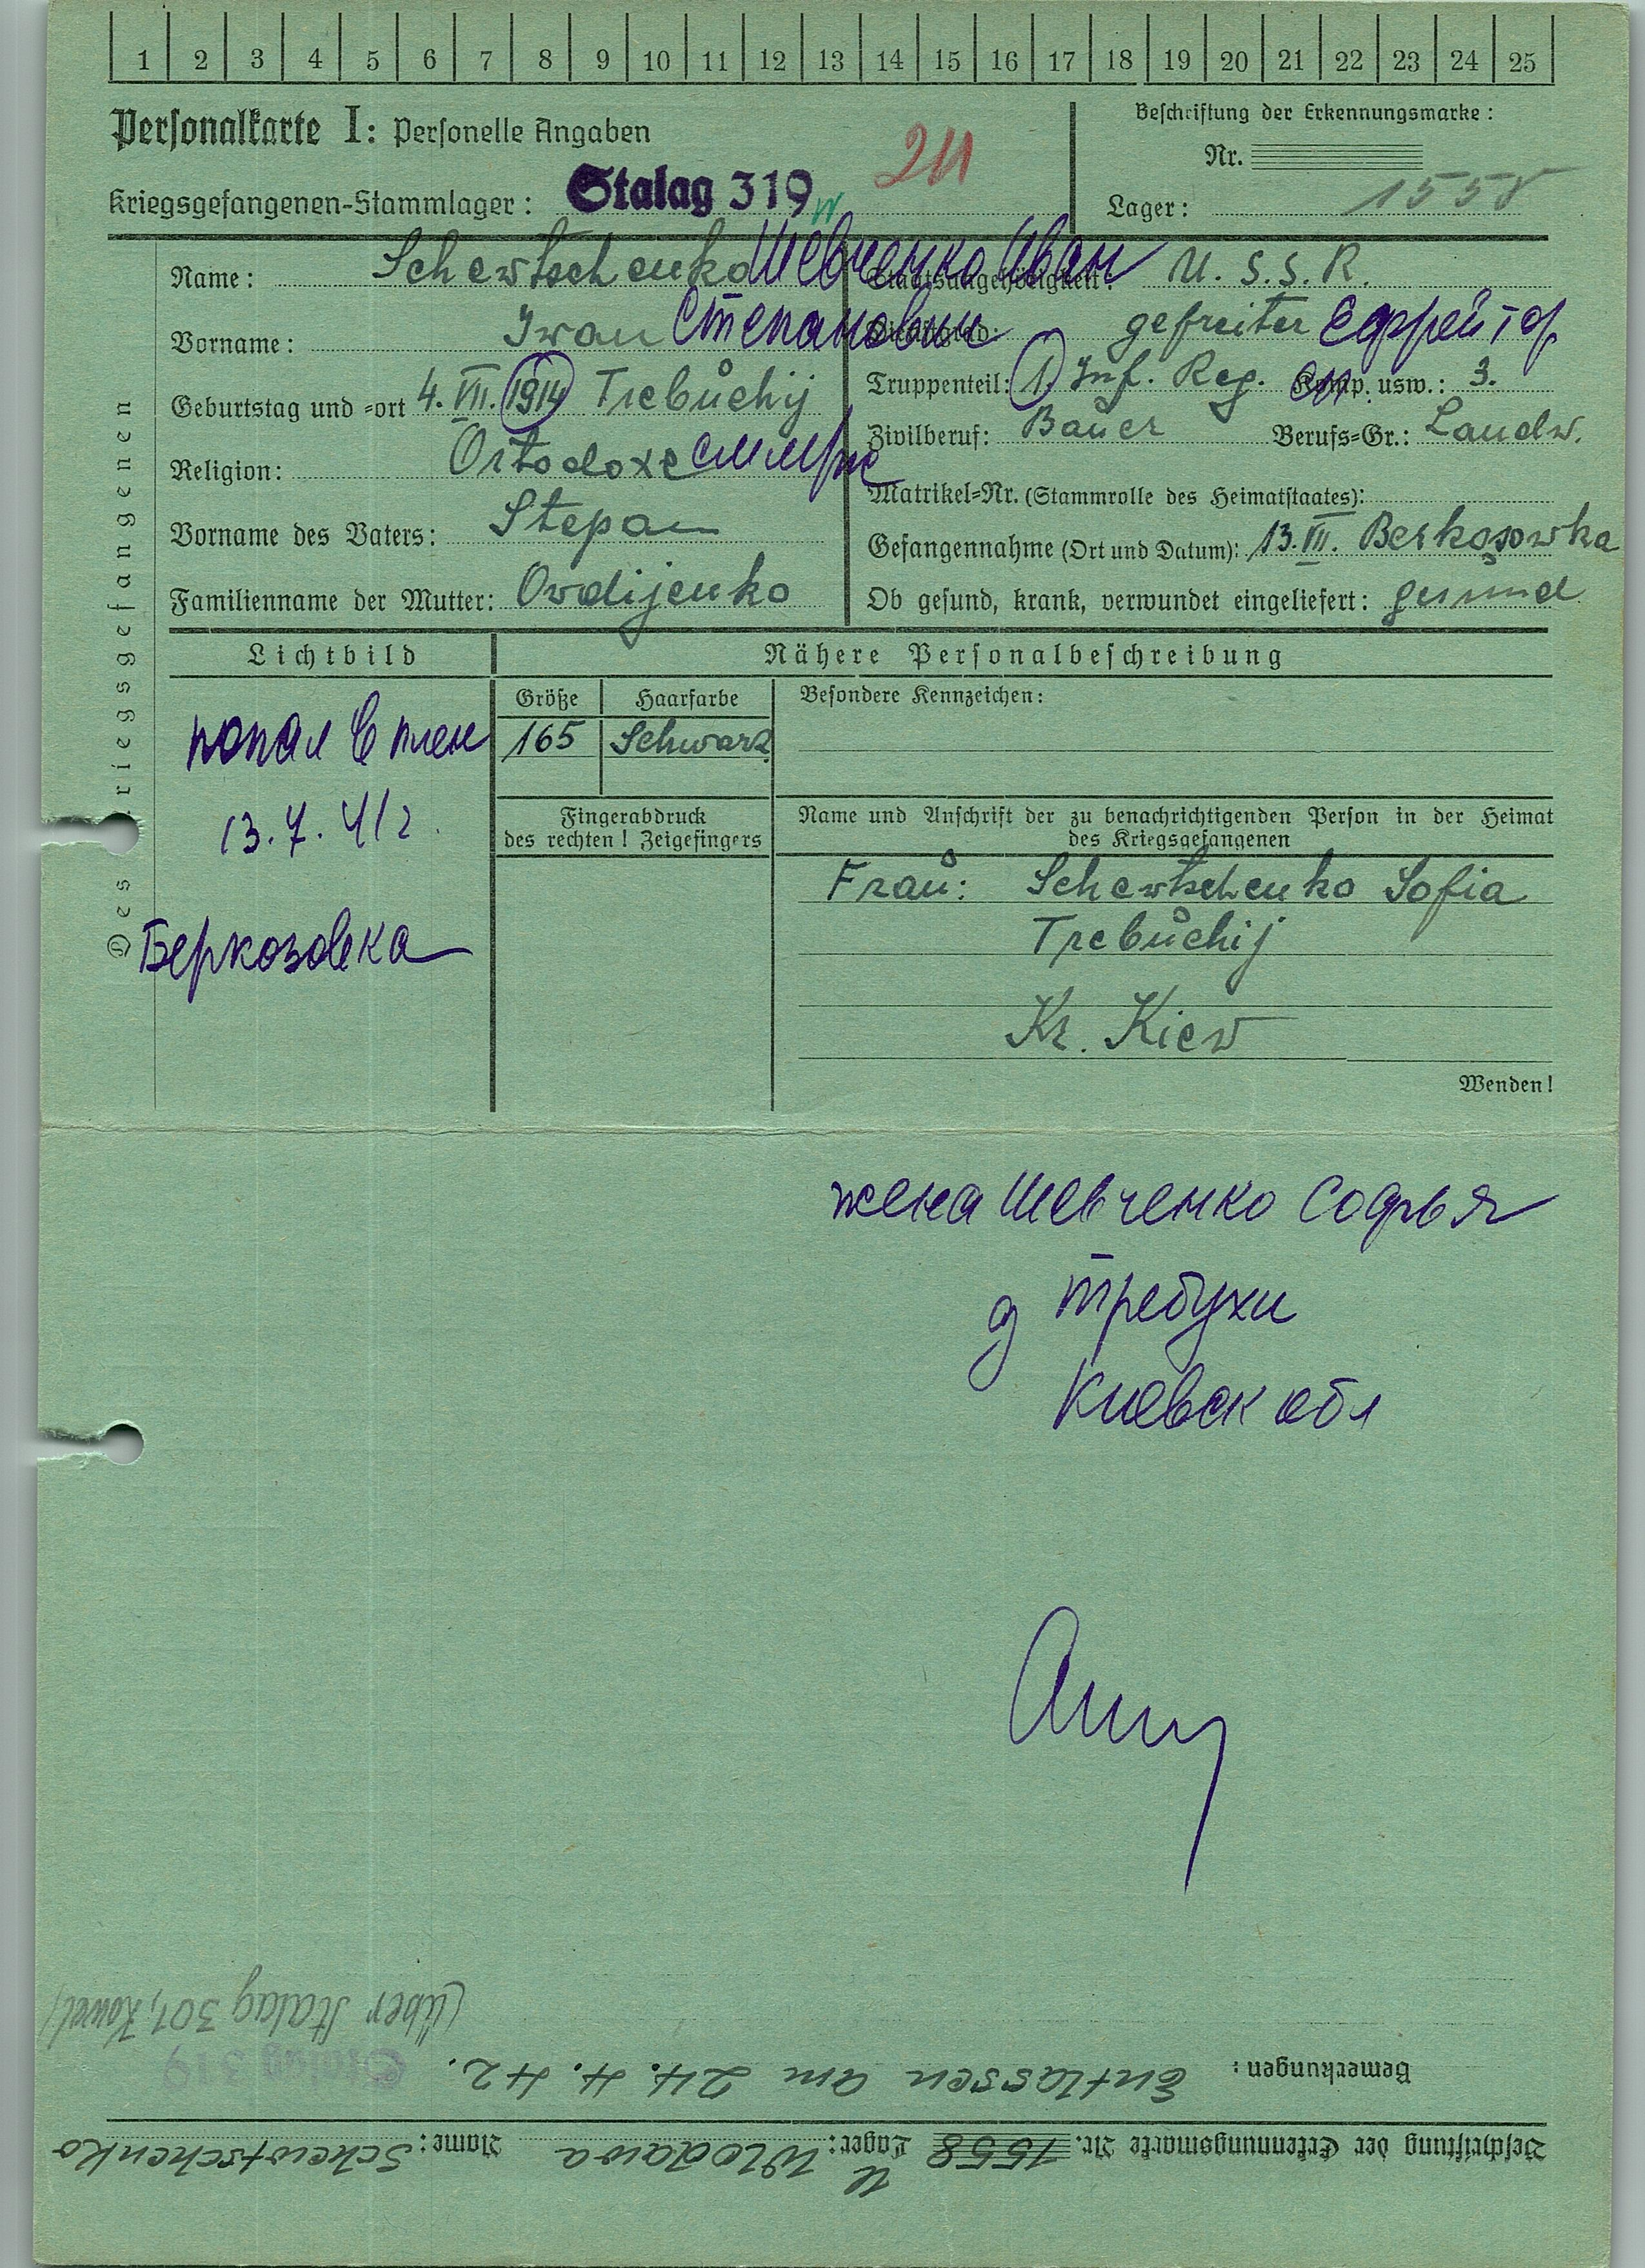 1 2 3 4 5 6 7 8 9 10 11 12 13 14 15 16 17 18 19 20 21 22 23 24 25
Personalkarte I: Personelle Angaben
Beschriftung der Erkennungsmarke:
211
Nr.
Kriegsgefangenen-Stammlager: Stalag 319
Lager: 1558
Des Kriegsgefangenen
Name: Schewtschenko Шевченко Иван
Staatsangehörigkeit: U. S. S. R.
Vorname: Iwan Степанович
Dienstgrad: gefreiter Ефрейтор
Geburtstag und -ort 4. VII. 1914 Trebuchij
Truppenteil: 1. Inf. Reg. Komp. usw.: 3.
Zivilberuf: Bauer Berufs-Gr.: Landw.
Religion: Ortodoxe
Matrikel-Nr. (Stammrolle des Heimatstaates):
Vorname des Vaters: Stepan
Gefangennahme (Ort und Datum): 13. VII. Berkosowka
Familienname der Mutter: Ovdijenko
Ob gesund, krank, verwundet eingeliefert: gesund
Lichtbild
Nähere Personalbeschreibung
Größe Haarfarbe Besondere Kennzeichen:
165 Schwarz
попал в плен
13. 7. 41 г
Берковзовка
Fingerabdruck
des rechten! Zeigefingers
Name und Anschrift der zu benachrichtigenden Person in der Heimat
des Kriegsgefangenen
Frau: Schewtschenko Sofia
Trebuchij
Kr. Kiew
Wenden!
жена Шевченко Софья
д Требухи
Киевск обл
(über Stalag 301, Kowel)
Bemerkungen: Entlassen am 24. 4. 42. Stalag 319
Beschriftung der Erkennungsmarke Nr. 1558 Lager: Wlodawa Name: Schewtschenko